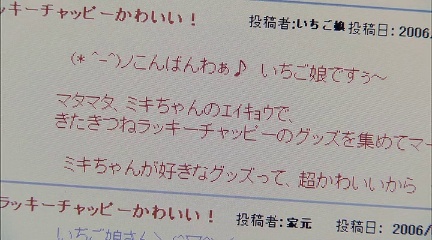 ッキーチャッピーかわいい！ 投稿者:いちご娘 投稿日: 2006/
(*^-^)ノこんばんわぁ♪ いちご娘ですぅ～
マタマタ、ミキちゃんのエイキョウで、
きたきつねラッキーチャッピーのグッズを集めてマー
ミキちゃんが好きなグッズって、超かわいいから
ラッキーチャッピーかわいい！ 投稿者: 家元 投稿日: 2006/0
いちご娘さん